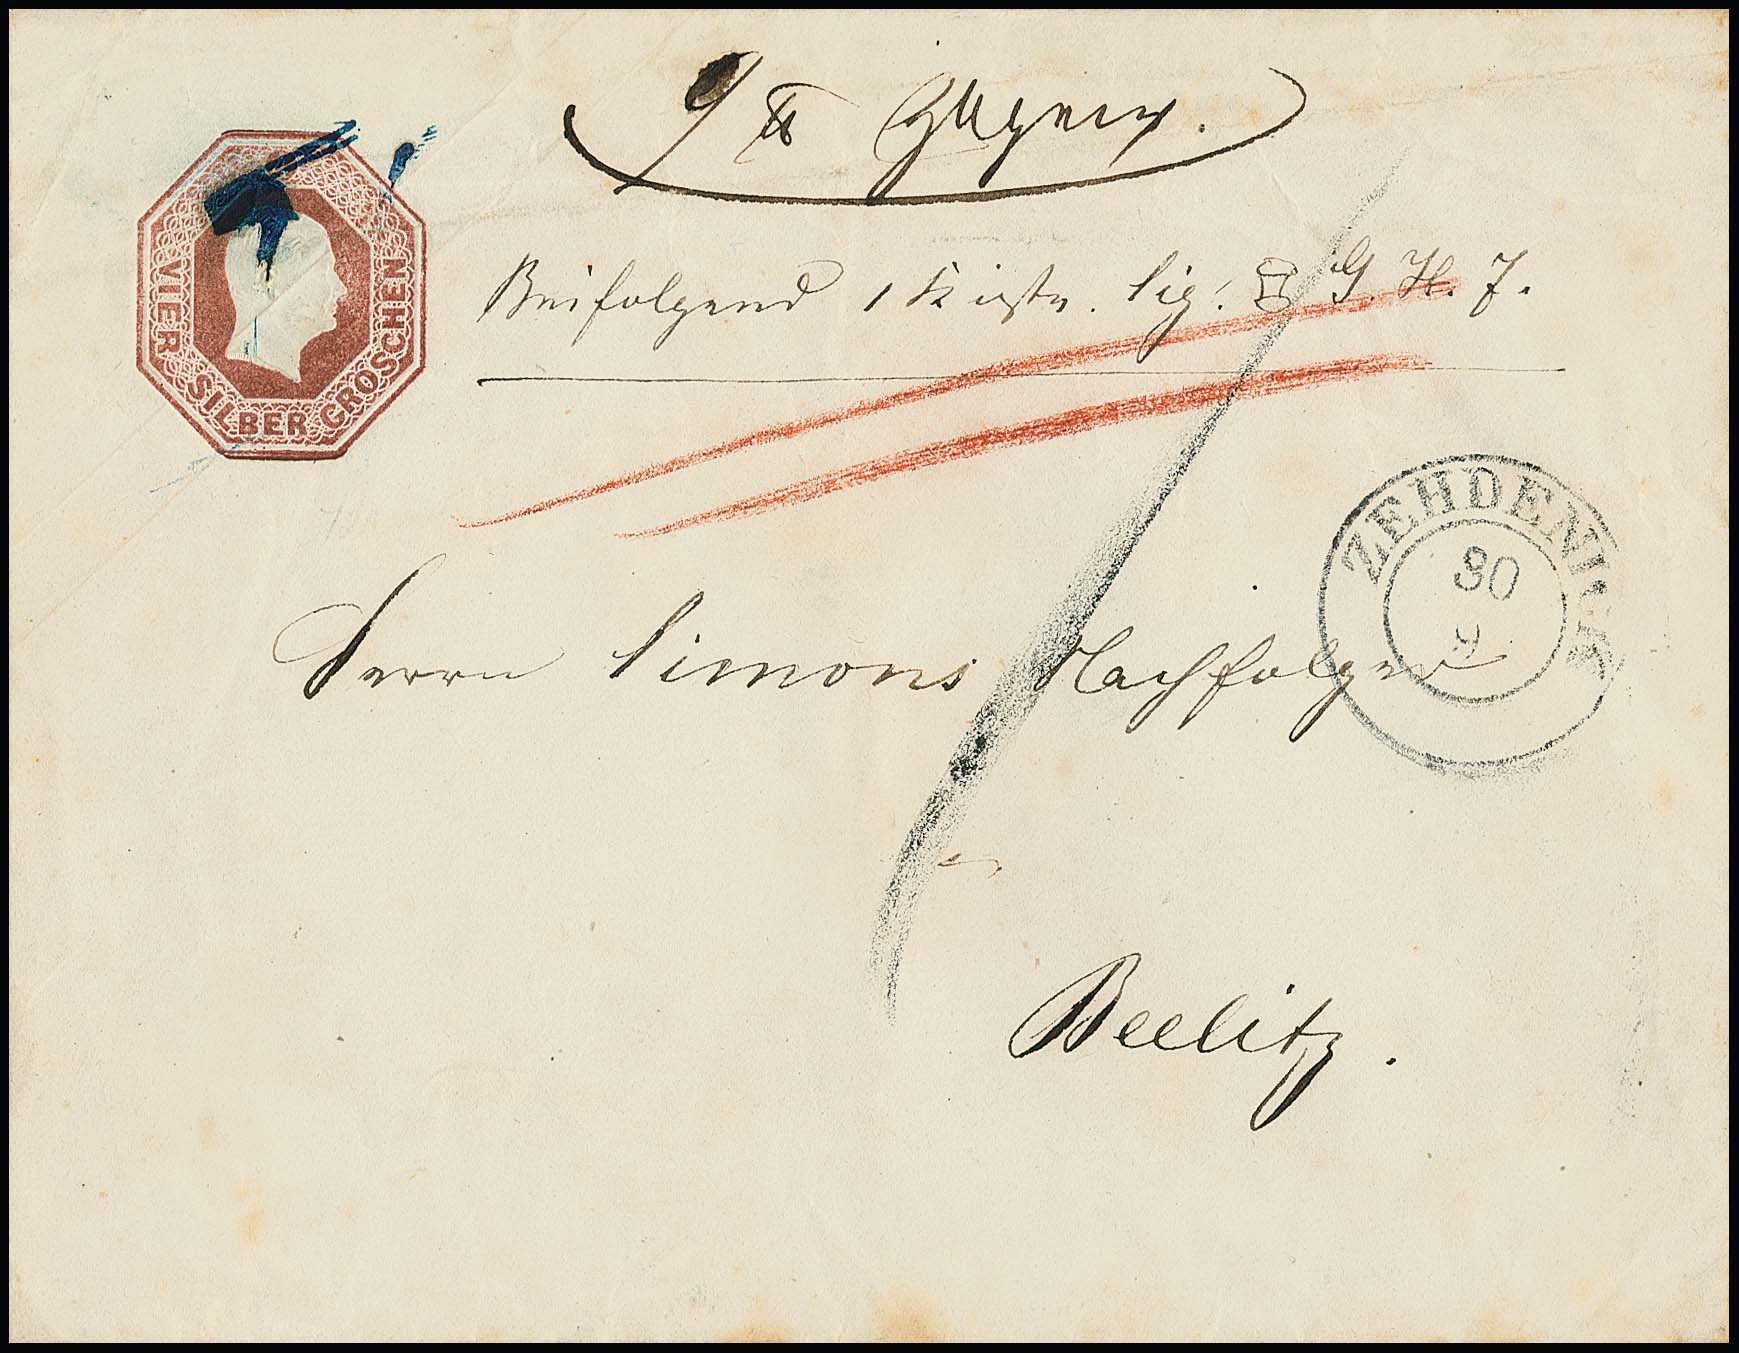 VIER SILBER GROSCHEN
9 ℔
Beifolgend 1 Kiste. sig: G. H. 7.
ZEHDENICK
30
9
Herrn Simons Nachfolger
Beelitz.